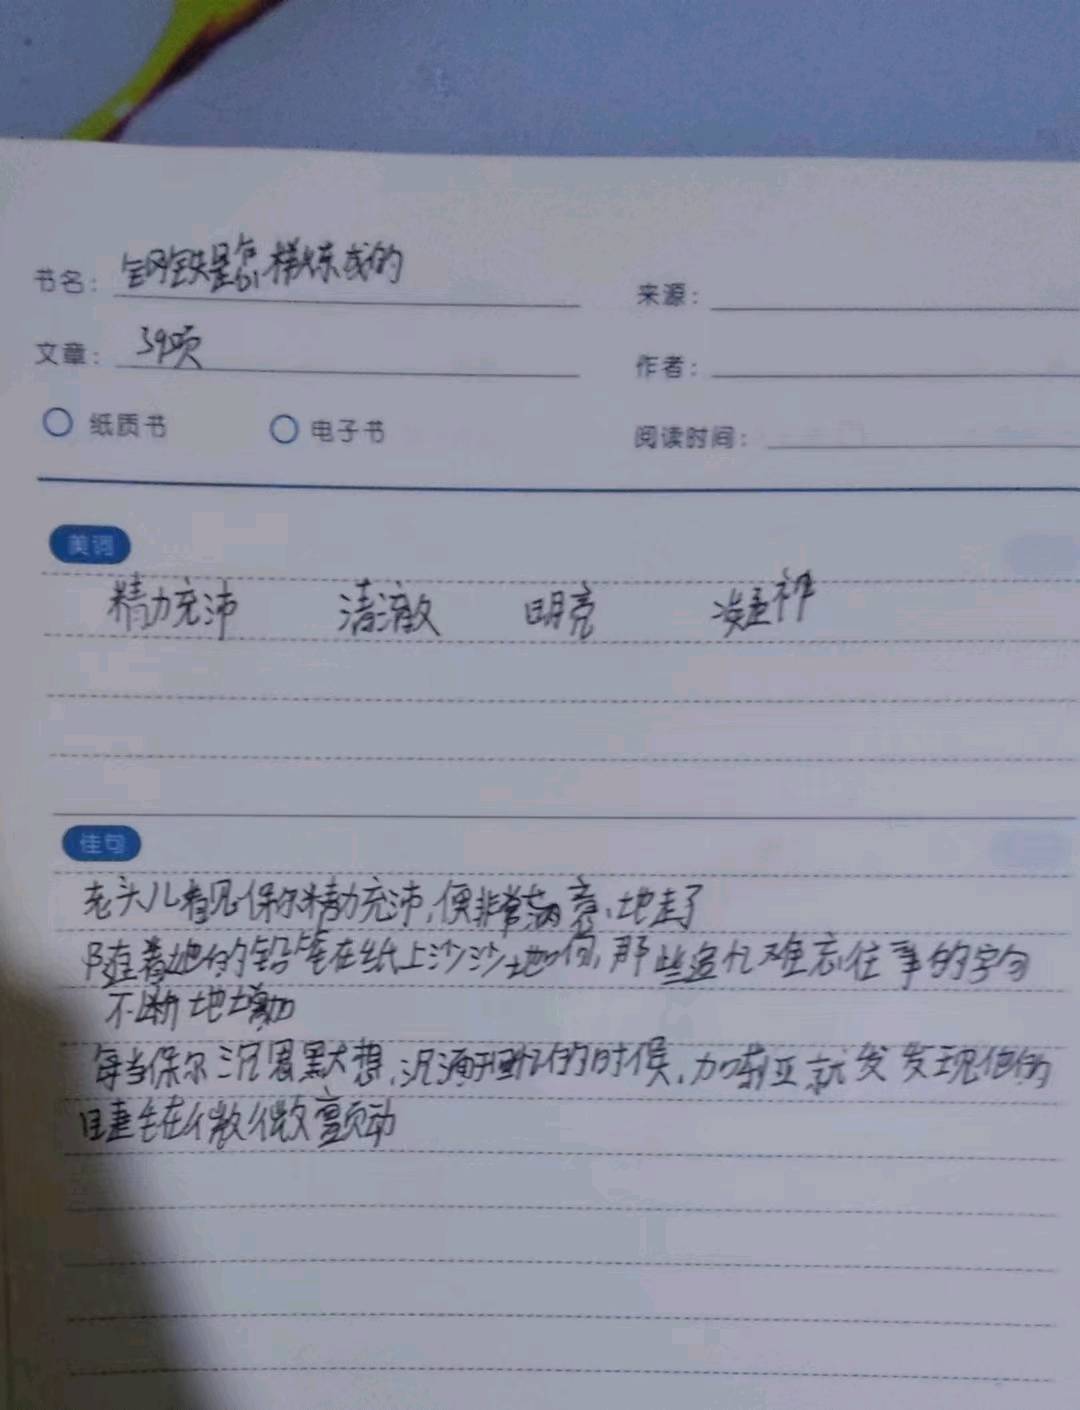 书名： 钢铁是怎样炼成的
来源：
文章： 39页
作者：
纸质书 电子书 阅读时间：
美词
精力充沛 清澈 明亮 凝神
佳句
老头儿看见保尔精力充沛，便非常满意地走了
随着她的铅笔在纸上沙沙地 那些追忆难忘往事的字句
不断地增加
每当保尔沉思默想，沉湎 的时候，加 亚就发发现他的
睫毛在微微颤动